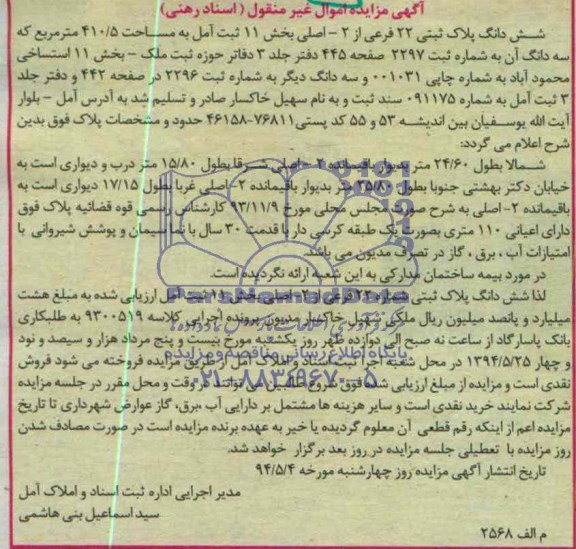 آگهی مزایده اموال غیر منقول ( اسناد رهنی)
شش دانگ پلاک ثبتی ۲۲ فرعی از ۲ - اصلی بخش ۱۱ ثبت آمل به مساحت ۴۱۰/۵ مترمربع که
سه دانگ آن به شماره ثبت ۲۲۹۷ صفحه ۴۴۵ دفتر جلد ۳ دفاتر حوزه ثبت ملک - بخش ۱۱ استساخی
محمود آباد به شماره چاپی ۰۰۱۰۳۱ و سه دانگ دیگر به شماره ثبت ۲۲۹۶ در صفحه ۴۴۲ و دفتر جلد
۳ ثبت آمل به شماره ۰۹۱۱۷۵ سند ثبت و به نام سهیل خاکسار صادر و تسلیم شد به آدرس آمل - بلوار
آیت الله یوسفیان بین اندیشه ۵۳ و ۵۵ کد پستی ۷۶۸۱۱-۴۶۱۵۸ حدود و مشخصات پلاک فوق بدین
شرح اعلام می گردد:
شمالا بطول ۲۴/۶۰ متر بدیوار باقیمانده ۲ - اصلی شرقا بطول ۱۵/۸۰ متر درب و دیواری است به
خیابان دکتر بهشتی جنوبا بطول ۲۵/۸۰ متر بدیوار باقیمانده ۲- اصلی غربا بطول ۱۷/۱۵ دیواری است به
باقیمانده ۲- اصلی به شرح صورت مجلس محلی مورخ ۹۳/۱۱/۹ کارشناس رسمی قوه قضائیه پلاک فوق
دارای اعیانی ۱۱۰ متری بصورت یک طبقه کرسی دار با قدمت ۳۰ سال با نما سیمان و پوشش شیروانی با
امتیازات آب ، برق ، گاز در تصرف مدیون می باشد.
در مورد بیمه ساختمان مدارکی به این شعبه ارائه نگردیده است.
لذا شش دانگ پلاک ثبتی شماره ۲۲ فرعی از ۲ - اصلی بخش ۱۱ ثبت آمل ارزیابی شده به مبلغ هشت
میلیارد و پانصد میلیون ریال ملکی سهیل خاکسار مدیون پرونده اجرایی کلاسه ۹۳۰۰۵۱۹ به طلبکاری
بانک پاسارگاد از ساعت نه صبح الی دوازده ظهر روز یکشنبه مورخ بیست و پنج مرداد هزار و سیصد و نود
و چهار ۱۳۹۴/۵/۲۵ در محل شعبه اجرا ثبت اسناد و املاک آمل از طریق مزایده فروخته می شود فروش
نقدی است و مزایده از مبلغ ارزیابی شده فوق شروع طالبین می توانند در وقت و محل مقرر در جلسه مزایده
شرکت نمایند خرید نقدی است و سایر هزینه ها مشتمل بر دارایی آب ،برق، گاز عوارض شهرداری تا تاریخ
مزایده اعم از اینکه رقم قطعی آن معلوم گردیده یا خیر به عهده برنده مزایده است در صورت مصادف شدن
روز مزایده با تعطیلی جلسه مزایده در روز بعد برگزار خواهد شد.
تاریخ انتشار آگهی مزایده روز چهارشنبه مورخه ۹۴/۵/۴
مدیر اجرایی اداره ثبت اسناد و املاک آمل
سید اسماعیل بنی هاشمی
م الف ۲۵۶۸
ParsNamadData
پایگاه اطلاع رسانی مناقصه و مزایده
۰۲۱-۸۸۳۴۹۶۷۰-۵